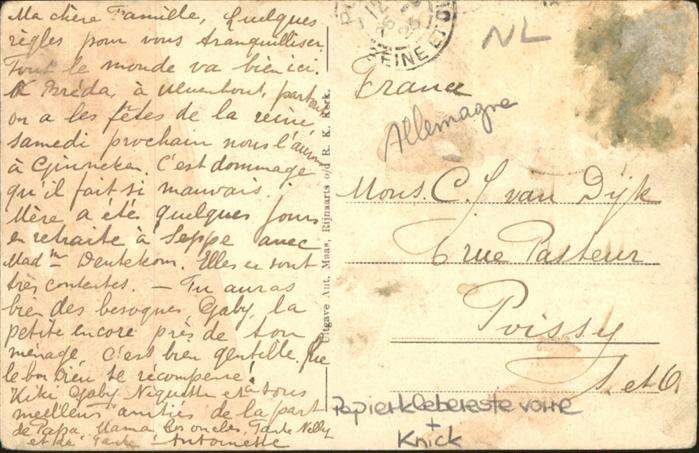 Ma chère Famille, Quelques
règles pour vous tranquilliser.
Tout le monde va bien ici.
A Breda, à Ulvenhout, partout
on a les fêtes de la reine
samedi prochain nous l'aurons
à Ginneken. C'est dommage
qu'il fait si mauvais.
Mère a été quelques jours
en retraite à Seppe avec
Mad me Deutekom. Elles en sont
très contentes. — Tu auras
bien des besognes, Gaby, la
petite encore près de ton
ménage, c'est bien gentille, que
le bon Dieu te récompense!
Kiki Gaby Niquette et à tous
meilleurs amitiés de la part
de Papa, Mama, les oncles, Tante Nelly
et de Tante Antoinette
Uitgave Ant. Maas, Rijnaarts o/d R. K. Kerk.
NL
France
Allemagne
Mons. C. J. van Dÿk
6 rue Pasteur
Poissy
S. et O.
Papierklebereste vorne
+
Knick